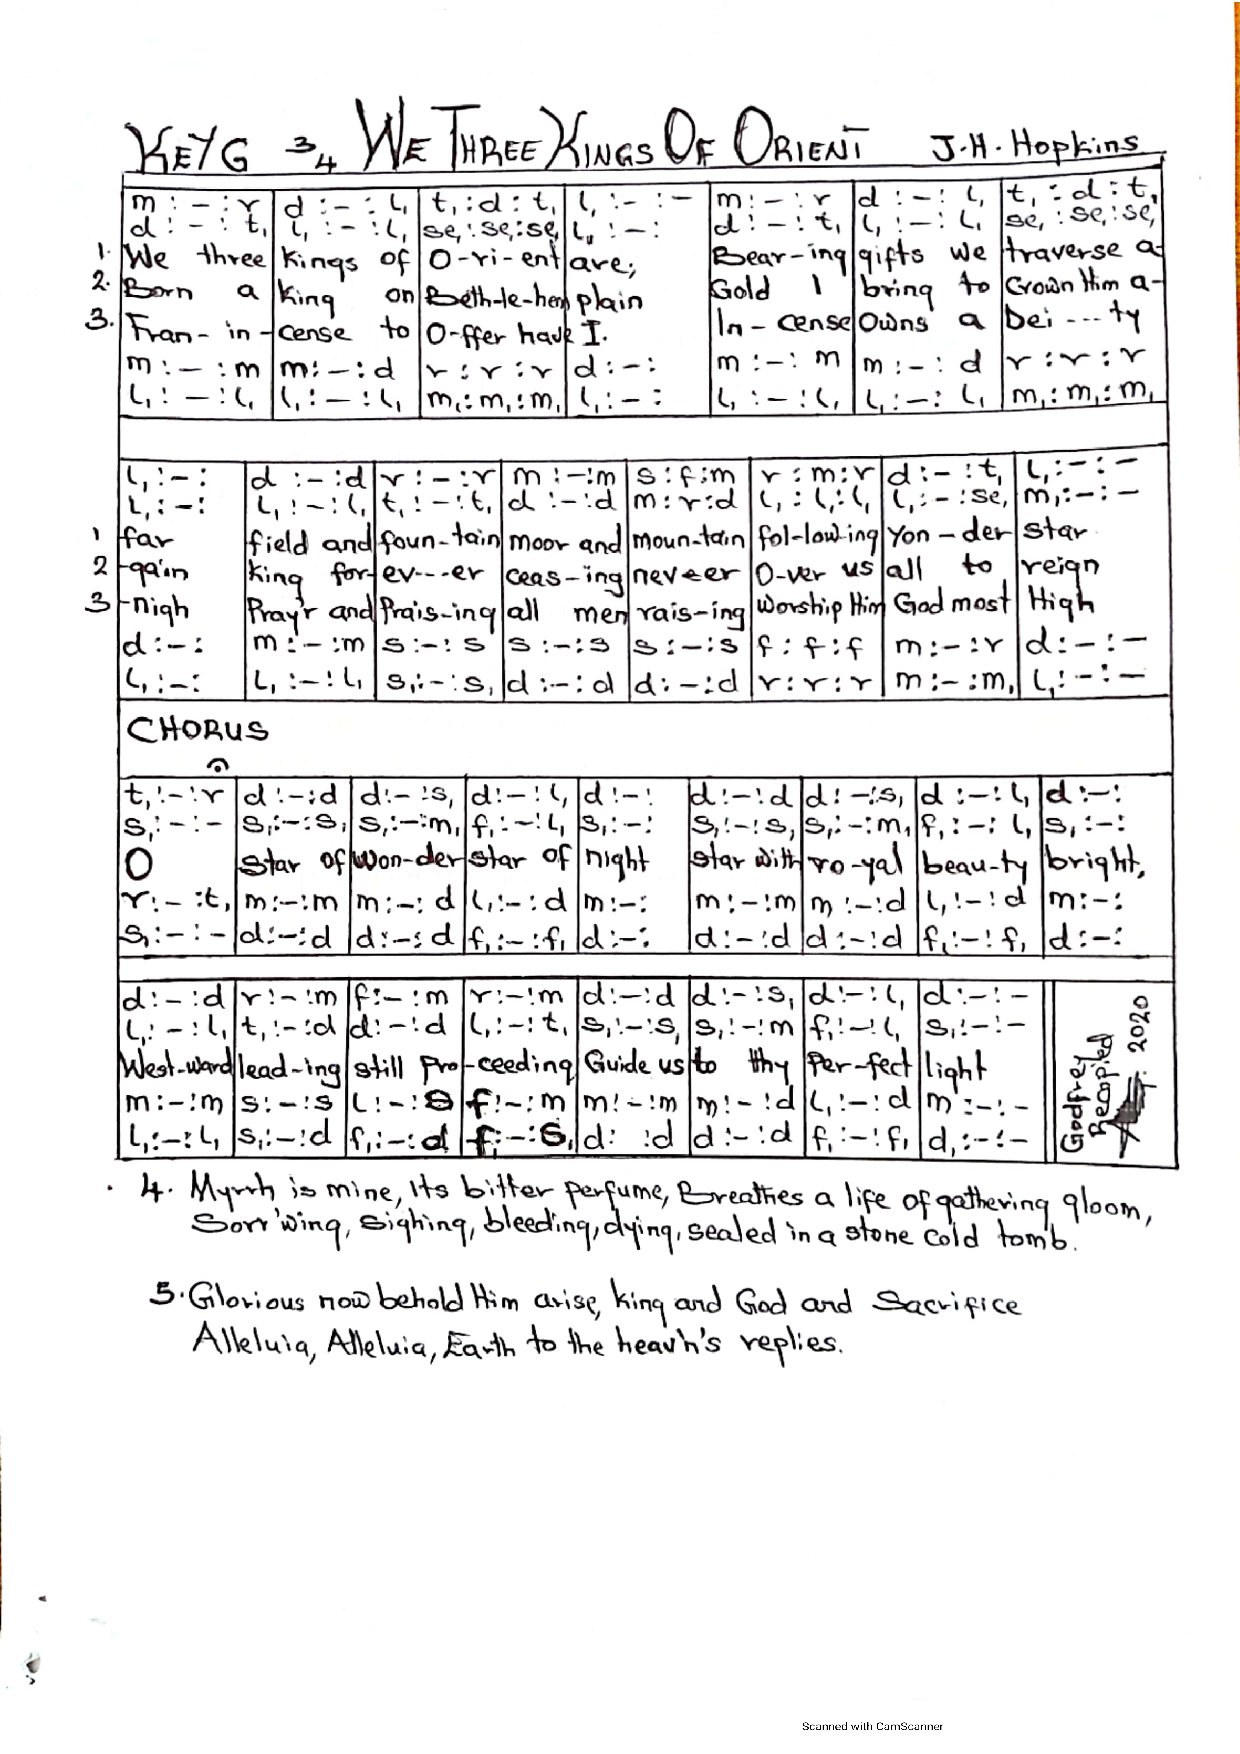 KEY G 3/4 WE THREE KINGS OF ORIENT J.H. Hopkins
m : - : r | d : - : l, | t, : d : t, | l, : - : - | m : - : r | d : - : l, | t, : d : t,
d : - : t, | l, : - : l, | se, : se, : se, | l, : - : | d : - : t, | l, : - : l, | se, : se, : se,
1. We three | kings of | O-ri-ent | are; | Bear-ing | gifts we | traverse a-
2. Born a | king on | Beth-le-hem | plain | Gold I | bring to | Crown Him a-
3. Fran-in- | cense to | O-ffer have | I. | In-cense | Owns a | Dei---ty
m : - : m | m : - : d | r : r : r | d : - : | m : - : m | m : - : d | r : r : r
l, : - : l, | l, : - : l, | m, : m, : m, | l, : - : | l, : - : l, | l, : - : l, | m, : m, : m,
l, : - : | d : - : d | r : - : r | m : - : m | s : f : m | r : m : r | d : - : t, | l, : - : -
l, : - : | l, : - : l, | t, : - : t, | d : - : d | m : r : d | l, : l, : l, | l, : - : se, | m, : - : -
1 far | field and | foun-tain | moor and | moun-tain | fol-low-ing | Yon-der | star
2 -gain | king for- | ev---er | ceas-ing | neveer | O-ver us | all to | reign
3 -nigh | Pray'r and | Prais-ing | all men | rais-ing | Worship Him | God most | High
d : - : | m : - : m | s : - : s | s : - : s | s : - : s | f : f : f | m : - : r | d : - : -
l, : - : | l, : - : l, | s, : - : s, | d : - : d | d : - : d | r : r : r | m : - : m, | l, : - : -
CHORUS
t, : - : r | d : - : d | d : - : s, | d : - : l, | d : - : | d : - : d | d : - : s, | d : - : l, | d : - :
s, : - : - | s, : - : s, | s, : - : m, | f, : - : l, | s, : - : | s, : - : s, | s, : - : m, | f, : - : l, | s, : - :
O | Star of | Won-der | star of | night | star with | ro-yal | beau-ty | bright,
r : - : t, | m : - : m | m : - : d | l, : - : d | m : - : | m : - : m | m : - : d | l, : - : d | m : - :
s, : - : - | d : - : d | d : - : d | f, : - : f, | d : - : | d : - : d | d : - : d | f, : - : f, | d : - :
d : - : d | r : - : m | f : - : m | r : - : m | d : - : d | d : - : s, | d : - : l, | d : - : -
l, : - : l, | t, : - : d | d : - : d | l, : - : t, | s, : - : s, | s, : - : m | f, : - : l, | s, : - : -
West-ward | lead-ing | still Pro- | -ceeding | Guide us | to thy | Per-fect | light
m : - : m | s : - : s | l : - : s | f : - : m | m : - : m | m : - : d | l, : - : d | m : - : -
l, : - : l, | s, : - : d | f, : - : d | f : - : s, | d : : d | d : - : d | f, : - : f, | d, : - : -
Godfrey
2020
4. Myrrh is mine, Its bitter perfume, Breathes a life of gathering gloom,
Sorr'wing, Sighing, bleeding, dying, sealed in a stone cold tomb.
5. Glorious now behold Him arise, king and God and Sacrifice
Alleluia, Alleluia, Earth to the heav'n's replies.
Scanned with CamScanner